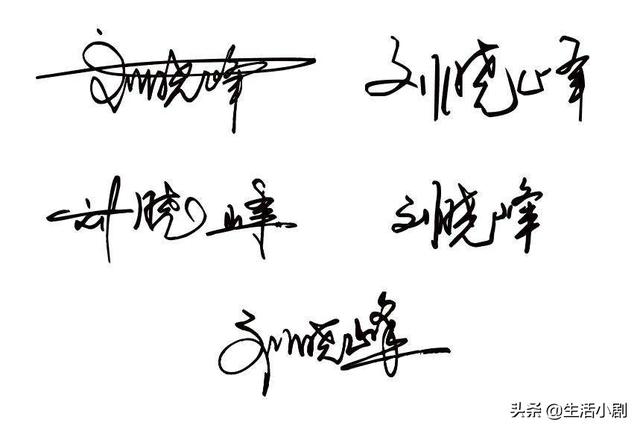 刘晓峰 刘晓峰
刘晓峰 刘晓峰
刘晓峰
头条 @生活小剧